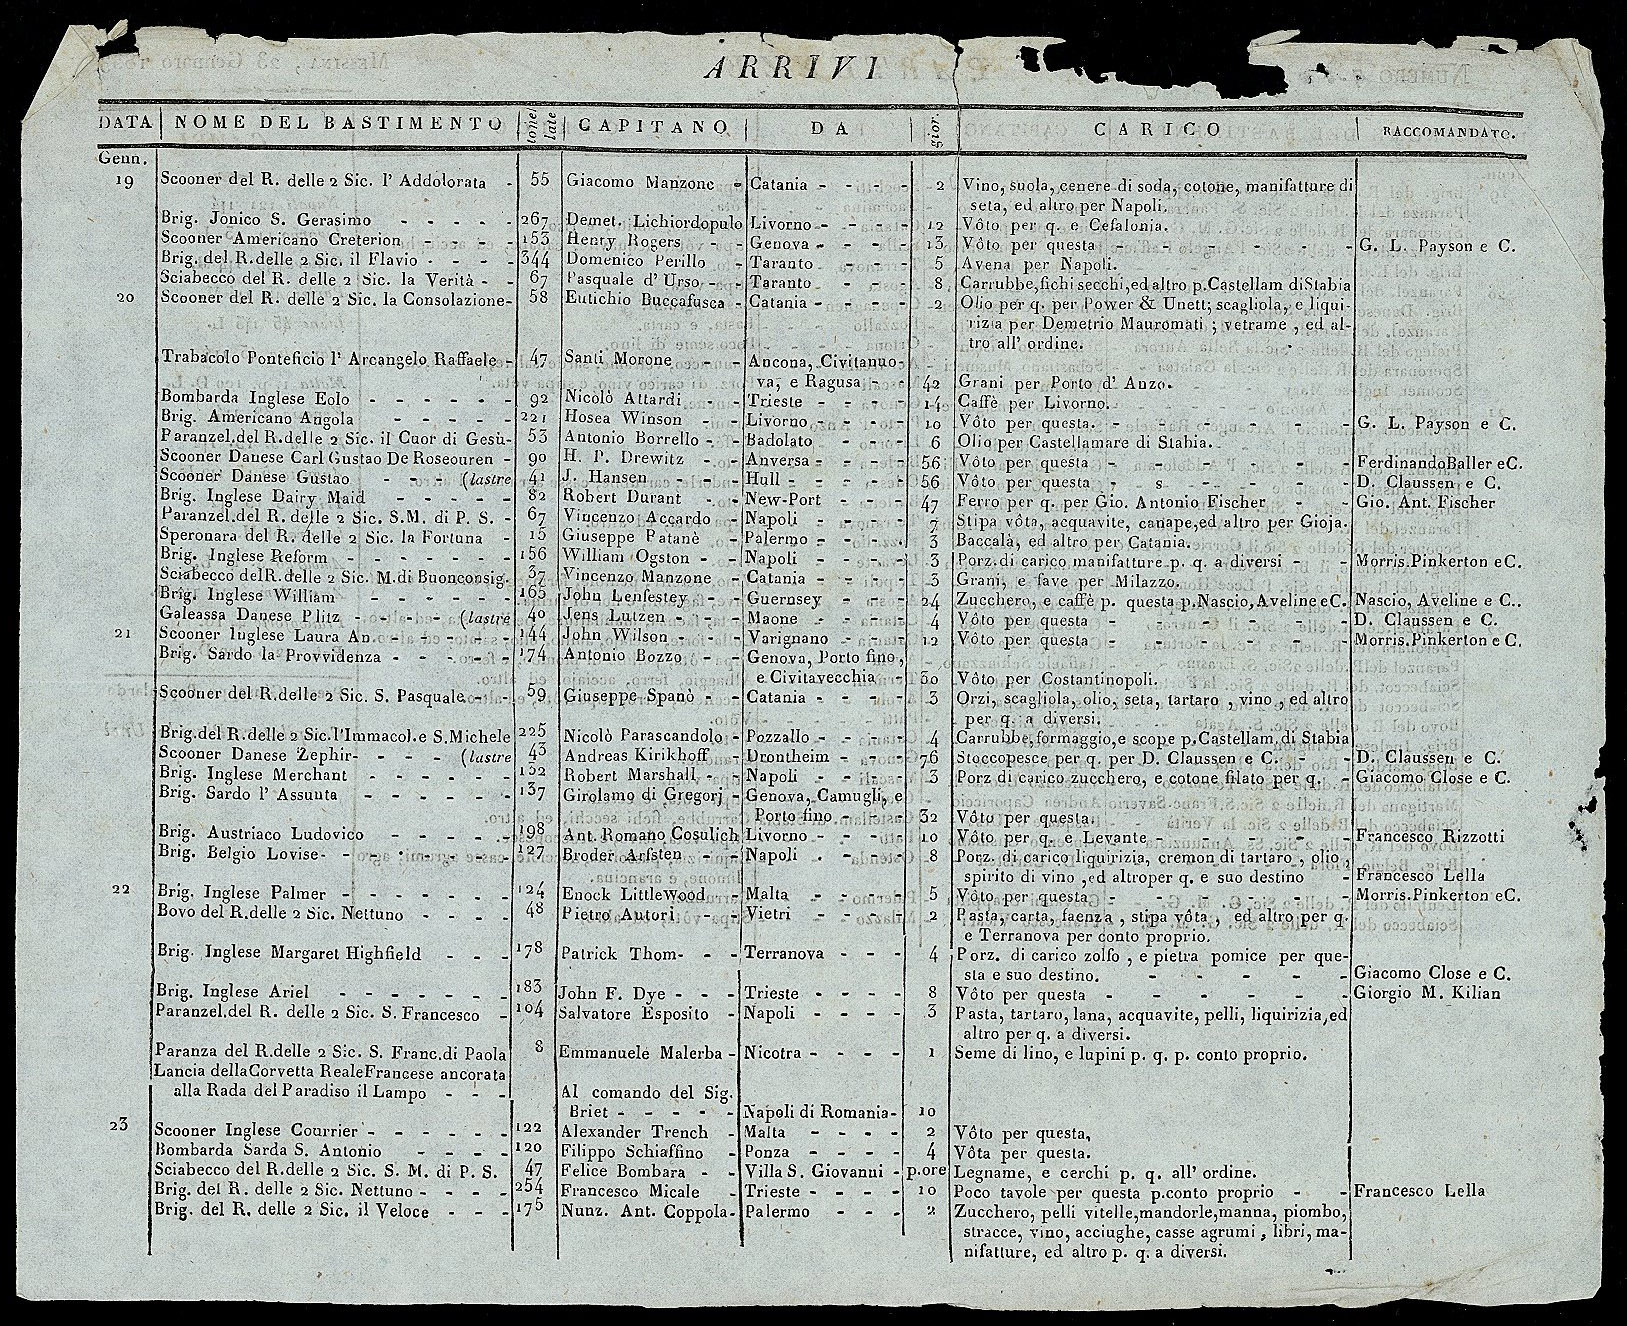 ARRIVI
DATA NOME DEL BASTIMENTO tonellate CAPITANO DA gior. CARICO RACCOMANDATO.
Genn.
19 Scooner del R. delle 2 Sic. l' Addolorata - 55 Giacomo Manzone - Catania - - - - 2 Vino, suola, cenere di soda, cotone, manifatture di
seta, ed altro per Napoli.
Brig. Jonico S. Gerasimo - - - - - 267 Demet. Lichiordopulo Livorno - - - - 12 Vôto per q. e Cefalonia.
Scooner Americano Creterion - - - - 153 Henry Rogers - - Genova - - - - 13 Vôto per questa - - - - - - - G. L. Payson e C.
Brig. del R. delle 2 Sic. il Flavio - - - - 344 Domenico Perillo - Taranto - - - 5 Avena per Napoli.
Sciabecco del R. delle 2 Sic. la Verità - - 67 Pasquale d' Urso - - Taranto - - - 8 Carrubbe, fichi secchi, ed altro p. Castellam di Stabia
20 Scooner del R. delle 2 Sic. la Consolazione - 58 Eutichio Buccafusca - Catania - - - - 2 Olio per q. per Power & Unett; scagliola, e liqui-
rizia per Demetrio Mauromati ; vetrame , ed al-
tro all' ordine.
Trabacolo Ponteficio l' Arcangelo Raffaele - 47 Santi Morone - - Ancona, Civitanuo-
va, e Ragusa - - 42 Grani per Porto d' Anzo.
Bombarda Inglese Eolo - - - - - - 92 Nicolò Attardi - - Trieste - - - - 14 Caffè per Livorno.
Brig. Americano Angola - - - - - 221 Hosea Winson - - Livorno - - - - 10 Vôto per questa. - - - - - - - G. L. Payson e C.
Paranzel. del R. delle 2 Sic. il Cuor di Gesù - 53 Antonio Borrello - - Badolato - - - 6 Olio per Castellamare di Stabia.
Scooner Danese Carl Gustao De Roseouren - 90 H. P. Drewitz - - Anversa - - - - 56 Vôto per questa - - - - - - - Ferdinando Baller e C.
Scooner Danese Gustao - - - (lastre 41 J. Hansen - - - Hull - - - - - 56 Vôto per questa - s - - - - - D. Claussen e C.
Brig. Inglese Dairy Maid - - - - - 82 Robert Durant - - New-Port - - - 47 Ferro per q. per Gio. Antonio Fischer - - Gio. Ant. Fischer
Paranzel. del R. delle 2 Sic. S.M. di P. S. - 67 Vincenzo Accardo - Napoli - - - - 7 Stipa vôta, acquavite, canape, ed altro per Gioja.
Speronara del R. delle 2 Sic. la Fortuna - 15 Giuseppe Patanè - Palermo - - - - 3 Baccalà, ed altro per Catania.
Brig. Inglese Reform - - - - - - 156 William Ogston - - Napoli - - - - 3 Porz. di carico manifatture p. q. a diversi - - Morris. Pinkerton e C.
Sciabecco del R. delle 2 Sic. M. di Buonconsig. 37 Vincenzo Manzone - Catania - - - - 3 Grani, e fave per Milazzo.
Brig. Inglese William - - - - - - 165 John Lenfestey - - Guernsey - - - 24 Zucchero, e caffè p. questa p. Nascio, Aveline e C. Nascio, Aveline e C..
Galeassa Danese Plitz - - - - (lastre 40 Jens Lutzen - - - Maone - - - - 4 Vôto per questa - - - - - - - D. Claussen e C.
21 Scooner Inglese Laura An. - - - - - 144 John Wilson - - - Varignano - - - 12 Vôto per questa - - - - - - - Morris. Pinkerton e C.
Brig. Sardo la Provvidenza - - - - - 174 Antonio Bozzo - - Genova, Porto fino,
e Civitavecchia - 30 Vôto per Costantinopoli.
Scooner del R. delle 2 Sic. S. Pasquale - - 59 Giuseppe Spanò - - Catania - - - - 3 Orzi, scagliola, olio, seta, tartaro , vino , ed altro
per q. a diversi.
Brig. del R. delle 2 Sic. l'Immacol. e S. Michele 225 Nicolò Parascandolo - Pozzallo - - - - 4 Carrubbe, formaggio, e scope p. Castellam. di Stabia
Scooner Danese Zephir - - - - (lastre 43 Andreas Kirikhoff - Drontheim - - - 76 Stoccopesce per q. per D. Claussen e C. - - D. Claussen e C.
Brig. Inglese Merchant - - - - - - 132 Robert Marshall - - Napoli - - - - 3 Porz di carico zucchero, e cotone filato per q. - Giacomo Close e C.
Brig. Sardo l' Assunta - - - - - - 137 Girolamo di Gregorj - Genova, Camugli, e
Porto fino - - - 32 Vôto per questa.
Brig. Austriaco Ludovico - - - - - 198 Ant. Romano Cosulich Livorno - - - - 10 Vôto per q. e Levante - - - - - Francesco Rizzotti
Brig. Belgio Lovise - - - - - - - 127 Broder Arfsten - - Napoli - - - - 8 Porz. di carico liquirizia, cremon di tartaro , olio ,
spirito di vino , ed altro per q. e suo destino - Francesco Lella
22 Brig. Inglese Palmer - - - - - - 124 Enock LittleWood - - Malta - - - - 5 Vôto per questa - - - - - - - Morris. Pinkerton e C.
Bovo del R. delle 2 Sic. Nettuno - - - - 48 Pietro Autori - - Vietri - - - - 2 Pasta, carta, faenza , stipa vôta , ed altro per q.
e Terranova per conto proprio.
Brig. Inglese Margaret Highfield - - - 178 Patrick Thom - - - Terranova - - - 4 Porz. di carico zolfo , e pietra pomice per que-
sta e suo destino. - - - - - - Giacomo Close e C.
Brig. Inglese Ariel - - - - - - - 183 John F. Dye - - - Trieste - - - - 8 Vôto per questa - - - - - - - Giorgio M. Kilian
Paranzel. del R. delle 2 Sic. S. Francesco - 104 Salvatore Esposito - Napoli - - - - 3 Pasta, tartaro, lana, acquavite, pelli, liquirizia, ed
altro per q. a diversi.
Paranza del R. delle 2 Sic. S. Franc. di Paola 8 Emmanuele Malerba - Nicotra - - - - 1 Seme di lino, e lupini p. q. p. conto proprio.
Lancia della Corvetta Reale Francese ancorata
alla Rada del Paradiso il Lampo - - - Al comando del Sig.
Briet - - - - - Napoli di Romania - 10
23 Scooner Inglese Courrier - - - - - - 122 Alexander Trench - Malta - - - - 2 Vôto per questa,
Bombarda Sarda S. Antonio - - - - 120 Filippo Schiaffino - Ponza - - - - 4 Vôta per questa.
Sciabecco del R. delle 2 Sic. S. M. di P. S. 47 Felice Bombara - - Villa S. Giovanni - p. ore Legname, e cerchi p. q. all' ordine.
Brig. del R. delle 2 Sic. Nettuno - - - - 254 Francesco Micale - Trieste - - - - 10 Poco tavole per questa p. conto proprio - - Francesco Lella
Brig. del R. delle 2 Sic. il Veloce - - - 175 Nunz. Ant. Coppola - Palermo - - - 2 Zucchero, pelli vitelle, mandorle, manna, piombo,
stracce, vino, acciughe, casse agrumi , libri, ma-
nifatture, ed altro p. q. a diversi.